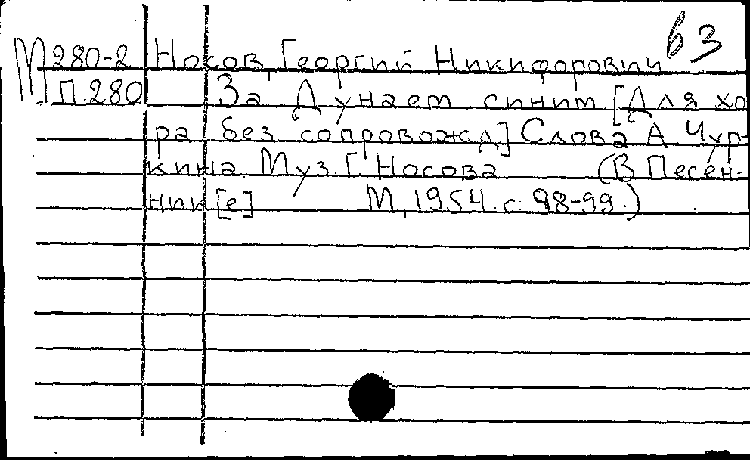 63
М 280-2 Носов, Георгий Никифорович
П 280 За Дунаем синим [Для хо-
ра без сопровожд.] Слова А. Чур-
кина. Муз. Г. Носова (В Песен-
ник[е] М., 1954. с. 98-99.)